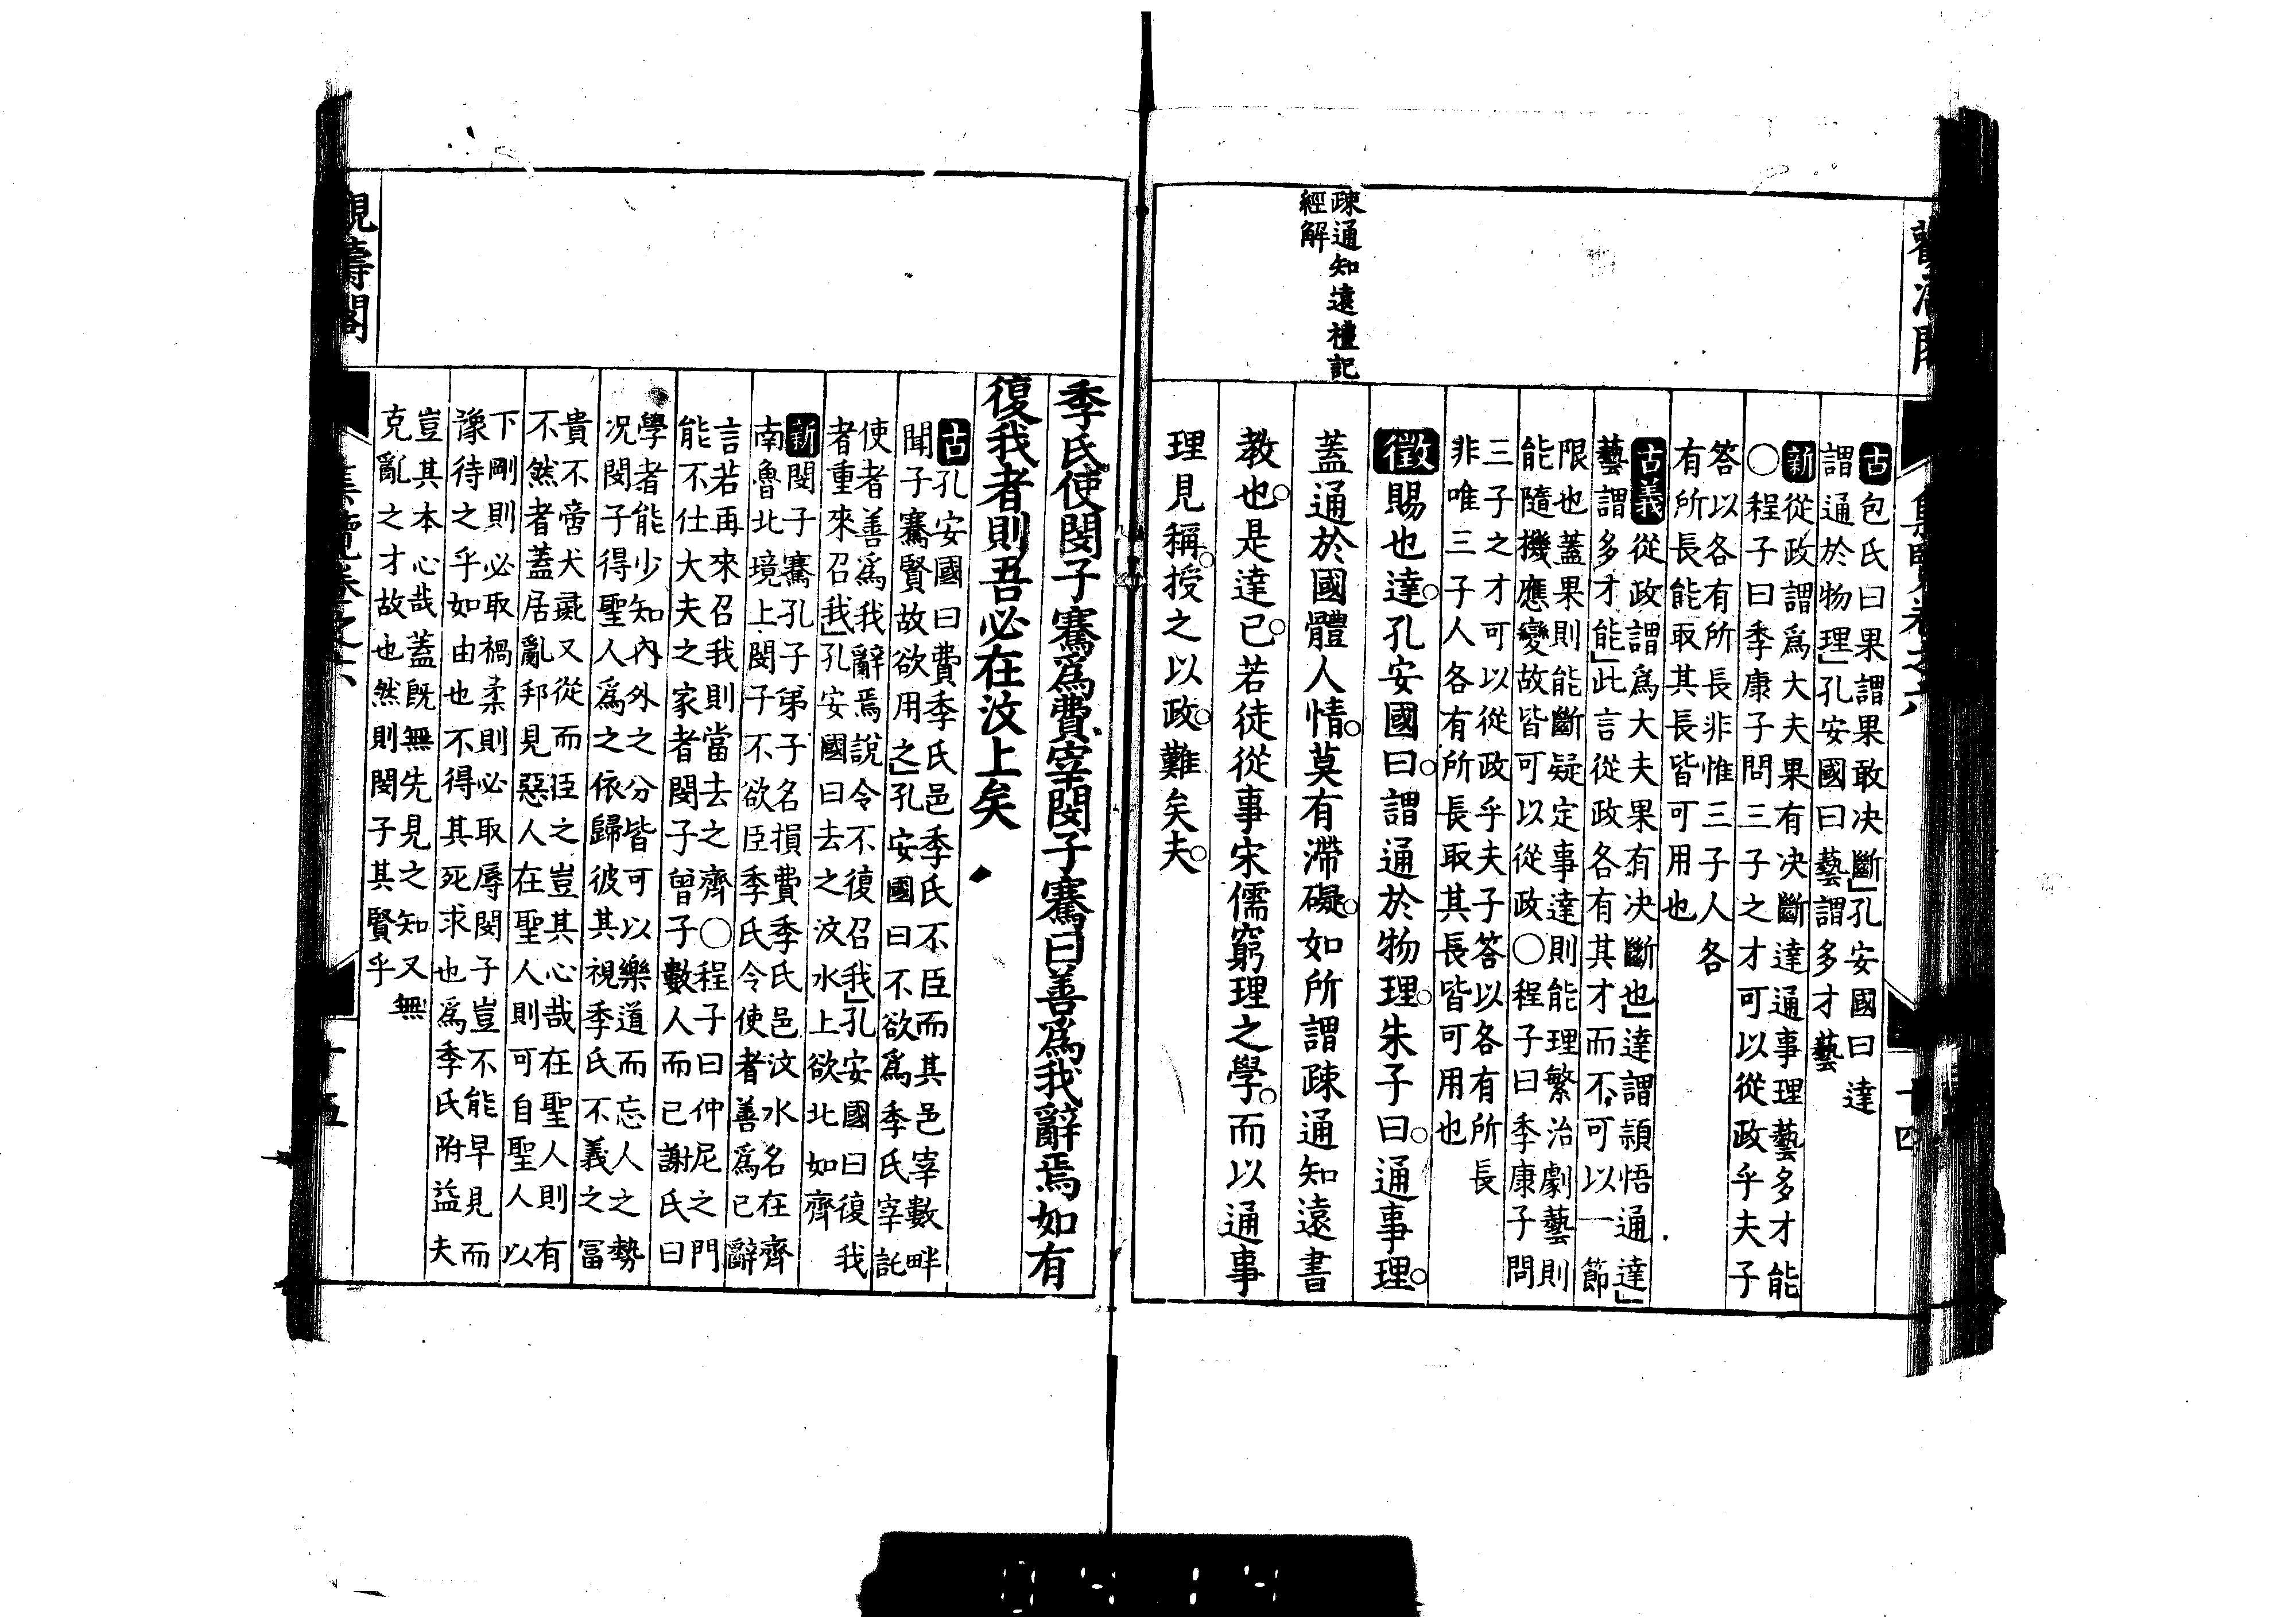 疎通知遠禮記
經解
古包氏曰果謂果敢決斷」孔安國曰達
謂通於物理」孔安國曰藝謂多才藝
新從政謂爲大夫果有决斷達通事理藝多才能
○程子曰季康子問三子之才可以從政乎夫子
答以各有所長非惟三子人各
有所長能取其長皆可用也
古義從政謂爲大夫果有决斷也」達謂頴悟通達」
藝謂多才能」此言從政各有其才而不可以一節
限也蓋果則能斷疑定事達則能理繁治劇藝則
能隨機應變故皆可以從政○程子曰季康子問
三子之才可以從政乎夫子答以各有所長
非唯三子人各有所長取其長皆可用也
徵賜也達。孔安國曰。謂通於物理。朱子曰。通事理。
蓋通於國體人情。莫有滯礙。如所謂疎通知遠書
教也。是達已。若徒從事宋儒窮理之學。而以通事
理見稱。授之以政。難矣夫。
十四
季氏使閔子騫爲費宰閔子騫曰善爲我辭焉如有
復我者則吾必在汶上矣
古孔安國曰費季氏邑季氏不臣而其邑宰數畔
聞子騫賢故欲用之」孔安國曰不欲爲季氏宰託
使者善爲我辭焉說令不復召我」孔安國曰復我
者重來召我」孔安國曰去之汶水上欲北如齊
新閔子騫孔子弟子名損費季氏邑汶水名在齊
南魯北境上閔子不欲臣季氏令使者善爲已辭
言若再來召我則當去之齊○程子曰仲尼之門
能不仕大夫之家者閔子曾子數人而已謝氏曰
學者能少知內外之分皆可以樂道而忘人之勢
况閔子得聖人爲之依歸彼其視季氏不義之冨
貴不啻犬彘又從而臣之豈其心哉在聖人則有
不然者蓋居亂邦見惡人在聖人則可自聖人以
下剛則必取禍柔則必取辱閔子豈不能早見而
豫待之乎如由也不得其死求也爲季氏附益夫
豈其本心哉蓋旣無先見之知又無
克亂之才故也然則閔子其賢乎
觀濤閣
集覽卷之六
十五